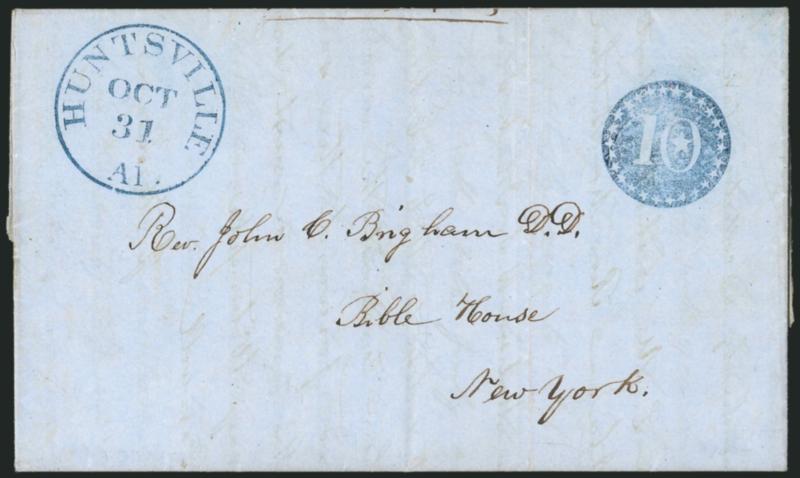 HUNTSVILLE
OCT
31
Al.
10
Rev. John C. Brigham D.D.
Bible House
New York.